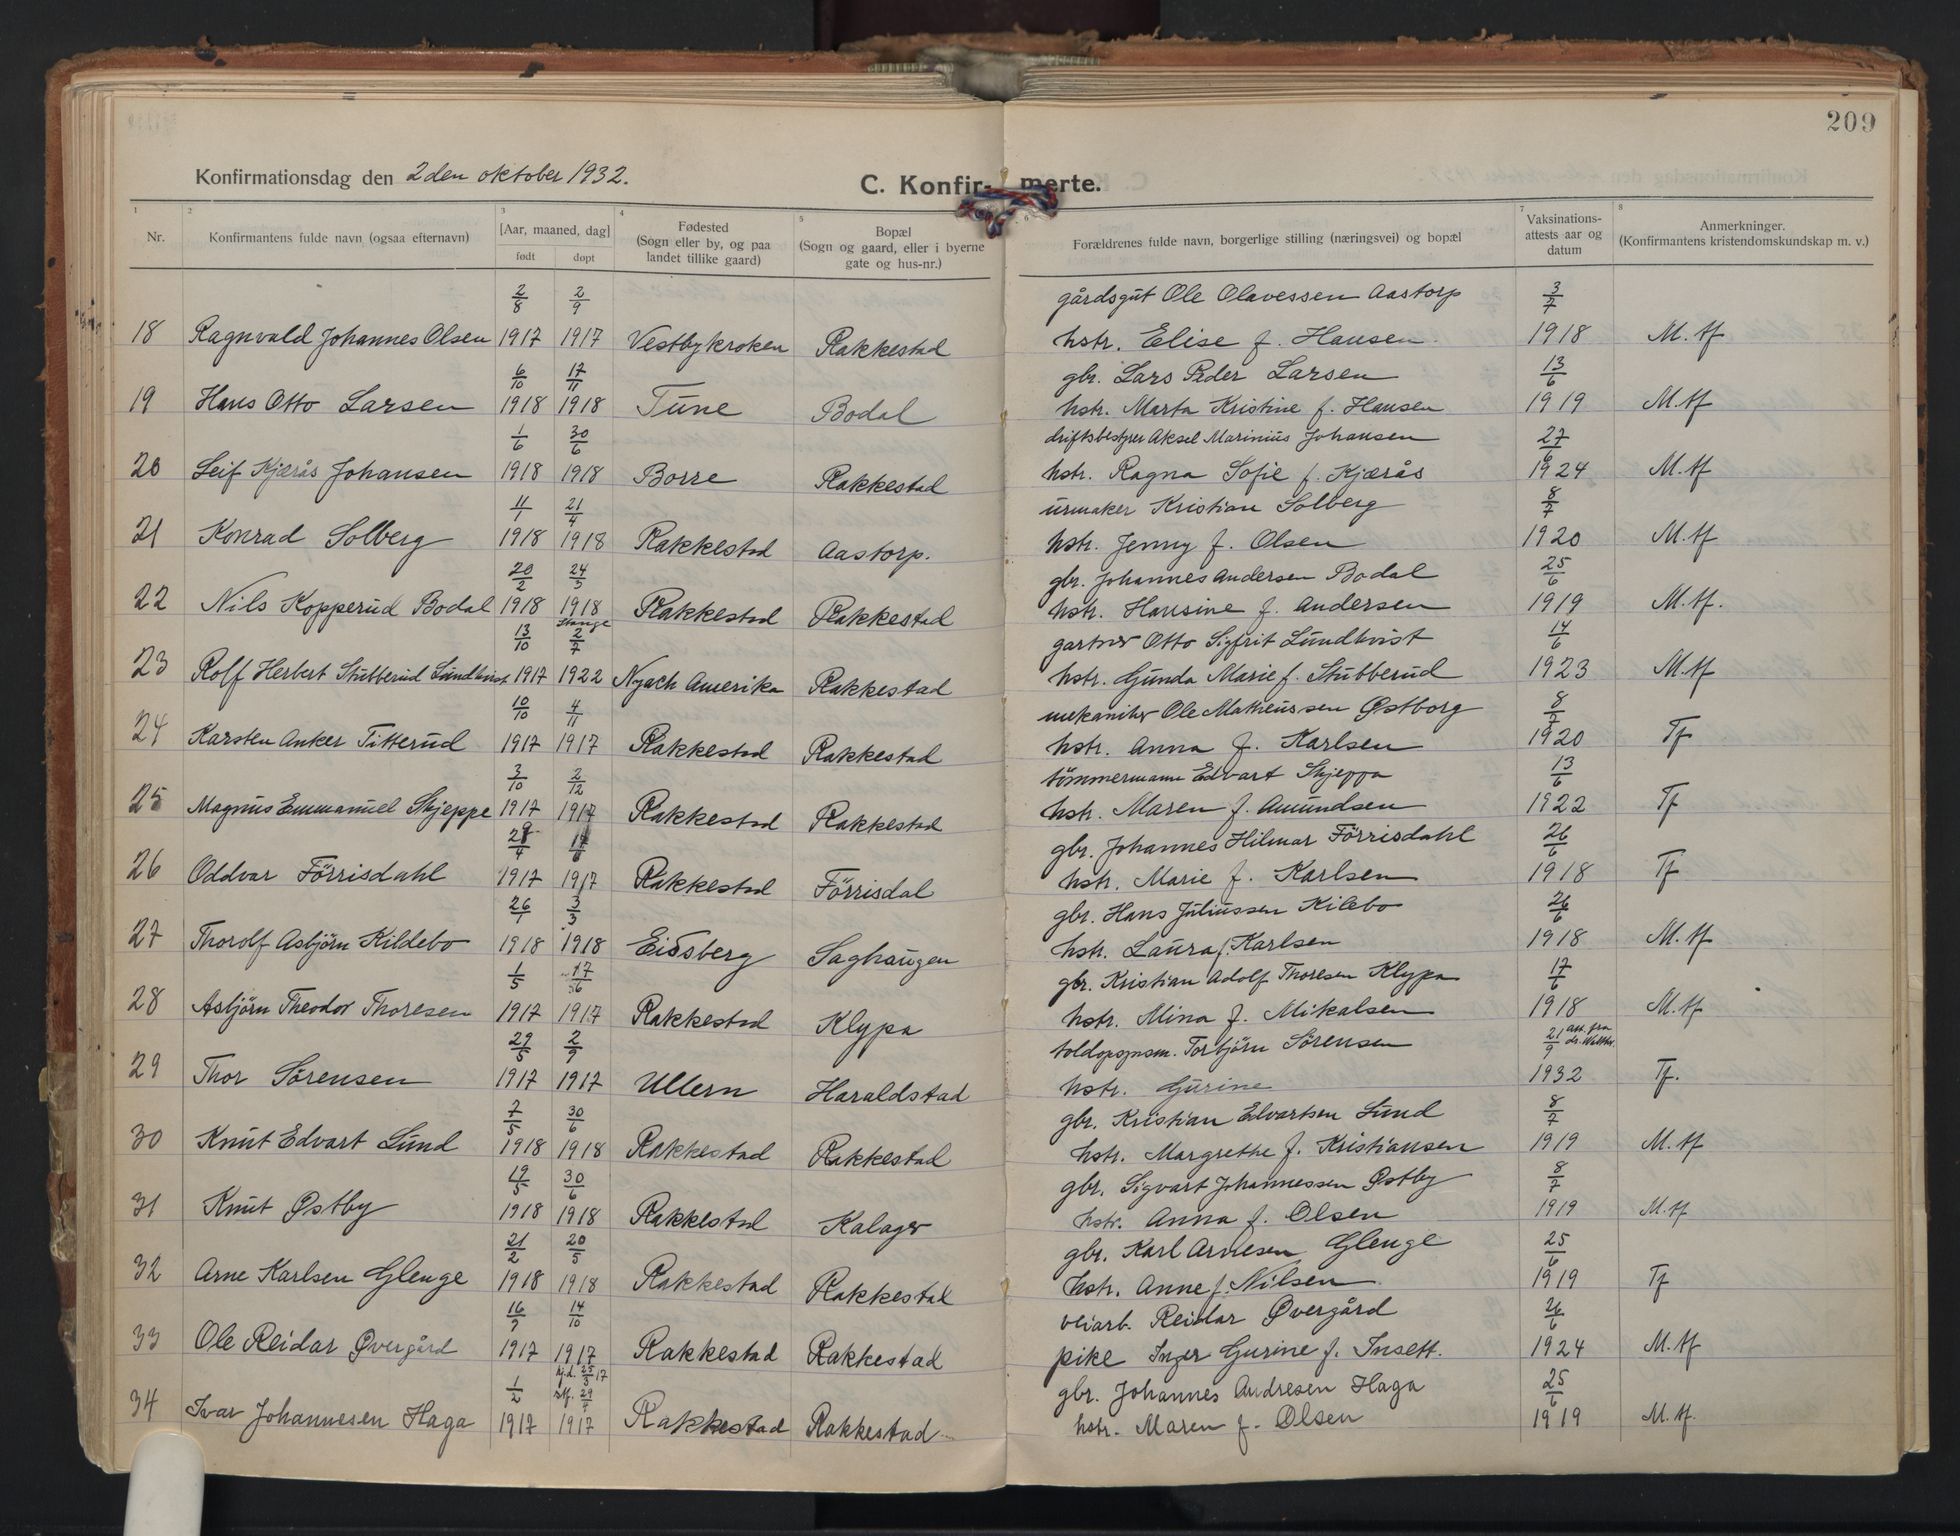 209
Konfirmationsdag den 2den oktober 1932.
C. Konfir- merte.
1 2 3 4 5 6 7 8
Nr.
Konfirmantens fulde navn (ogsaa efternavn)
[Aar, maaned, dag]
født døpt
Fødested
(Sogn eller by, og paa
landet tillike gaard)
Bopæl
(Sogn og gaard, eller i byerne
gate og hus-nr.)
Forældrenes fulde navn, borgerlige stilling (næringsvei) og bopæl
Vaksinations-
attests aar og
datum
Anmerkninger.
(Konfirmantens kristendomskundskap m. v.)
2/8 2/9 gårdsgut Ole Olavessen Aastorp 3/7
18 Ragnvald Johannes Olsen 1917 1917 Vestbykroken Rakkestad hstr. Elise f. Hansen. 1918 M.tf
6/10 17/11 gbr. Lars Peder Larsen 13/6
19 Hans Otto Larsen 1918 1918 Tune Bodal hstr. Marta Kristine f. Hansen 1919 M.tf
1/6 30/6 driftsbestyrer Aksel Marinius Johansen 27/8
20 Leif Kjærås Johansen 1918 1918 Borre Rakkestad hstr. Ragna Sofie f. Kjærås 1924 M.tf
11/1 21/4 urmaker Kristian Solberg 8/7
21 Konrad Solberg 1918 1918 Rakkestad Aastorp. hstr. Jenny f. Olsen 1920 M.tf
20/2 24/3 gbr. Johannes Andersen Bodal 25/6
22 Nils Kopperud Bodal 1918 1918 Rakkestad Rakkestad hstr. Hansine f. Andersen 1919 M.tf.
13/10 Stange 2/7 gartner Otto Sigfrit Lundkvist 14/6
23 Rolf Herbert Stubberud Lundkvist 1917 1922 Nyach Amerika Rakkestad hstr. Gunda Marie f. Stubberud 1923 M.tf
10/10 4/11 mekaniker Ole Matheussen Østborg 8/7
24 Karsten Anker Titterud 1917 1917 Rakkestad Rakkestad hstr. Anna f. Karlsen 1920 Tf
3/10 2/12 tømmermann Edvart Skjeppa 13/6
25 Magnus Emmanuel Skjeppe 1917 1917 Rakkestad Rakkestad hstr. Maren f. Amundsen 1922 Tf
gbr. Johannes Hilmar Förrisdahl 26/6
26 Oddvar Förrisdahl 1917 1917 Rakkestad Förrisdal hstr. Marie f. Karlsen 1918 Tf
26/1 3/3 gbr. Hans Juliussen Kilebo 26/6
27 Thorolf Asbjörn Kildebo 1918 1918 Eidsberg Saghaugen hstr. Laura f. Karlsen 1918 M.tf
1/5 17/6 gbr. Kristian Adolf Thoresen Klypa 17/6
28 Asbjörn Theodor Thoresen 1917 1917 Rakkestad Klypa hstr. Mina f. Mikalsen 1918 M.tf
29/5 2/9 toldopspsm. Torbjörn Sörensen 21/9 att. fra
29 Thor Sörensen 1917 1917 Ullern Haraldstad hstr. Gurine 1932 Tf.
7/5 30/6 gbr. Kristian Edvartsen Lund 8/7
30 Knut Edvart Lund 1918 1918 Rakkestad Rakkestad hstr. Margrethe f. Kristiansen 1919 M.tf
19/5 30/6 gbr. Sigvart Johannessen Østby 8/7
31 Knut Østby 1918 1918 Rakkestad Kalager hstr. Anna f. Olsen 1919 M.tf
21/2 20/5 gbr. Karl Arnesen Glenge 25/6
32 Arne Karlsen Glenge 1918 1918 Rakkestad Rakkestad hstr. Anne f. Nilsen 1919 Tf
16/9 14/10 veiarb. Reidar Øvergård 26/6
33 Ole Reidar Øvergård 1917 1917 Rakkestad Rakkestad pike Inger Gurine f. Insett. 1924 M.tf
1/2 hj.d. 25/3 17 stf. 29/4 gbr. Johannes Andresen Haga 25/6
34 Ivar Johannesen Haga 1917 1917 Rakkestad Rakkestad hstr. Maren f. Olsen 1919 M.tf.